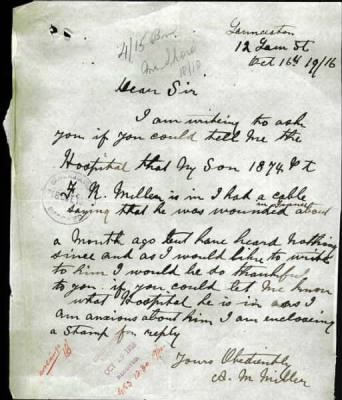 Launceston
12 Lam St
Oct 16th 19/16
4/15 Bn
Dear Sir
I am writing to ask
you if you could tell me the
Hospital that My Son 1874 Pt
F. R. Miller is in I had a cable
saying that he was wounded about
a month ago but have heard nothing
since and as I would like to write
to him I would be so thankful
to you if you could let me know
what Hospital he is in as I
am anxious about him I am enclosing
a stamp for reply
Yours Obediently
M Miller